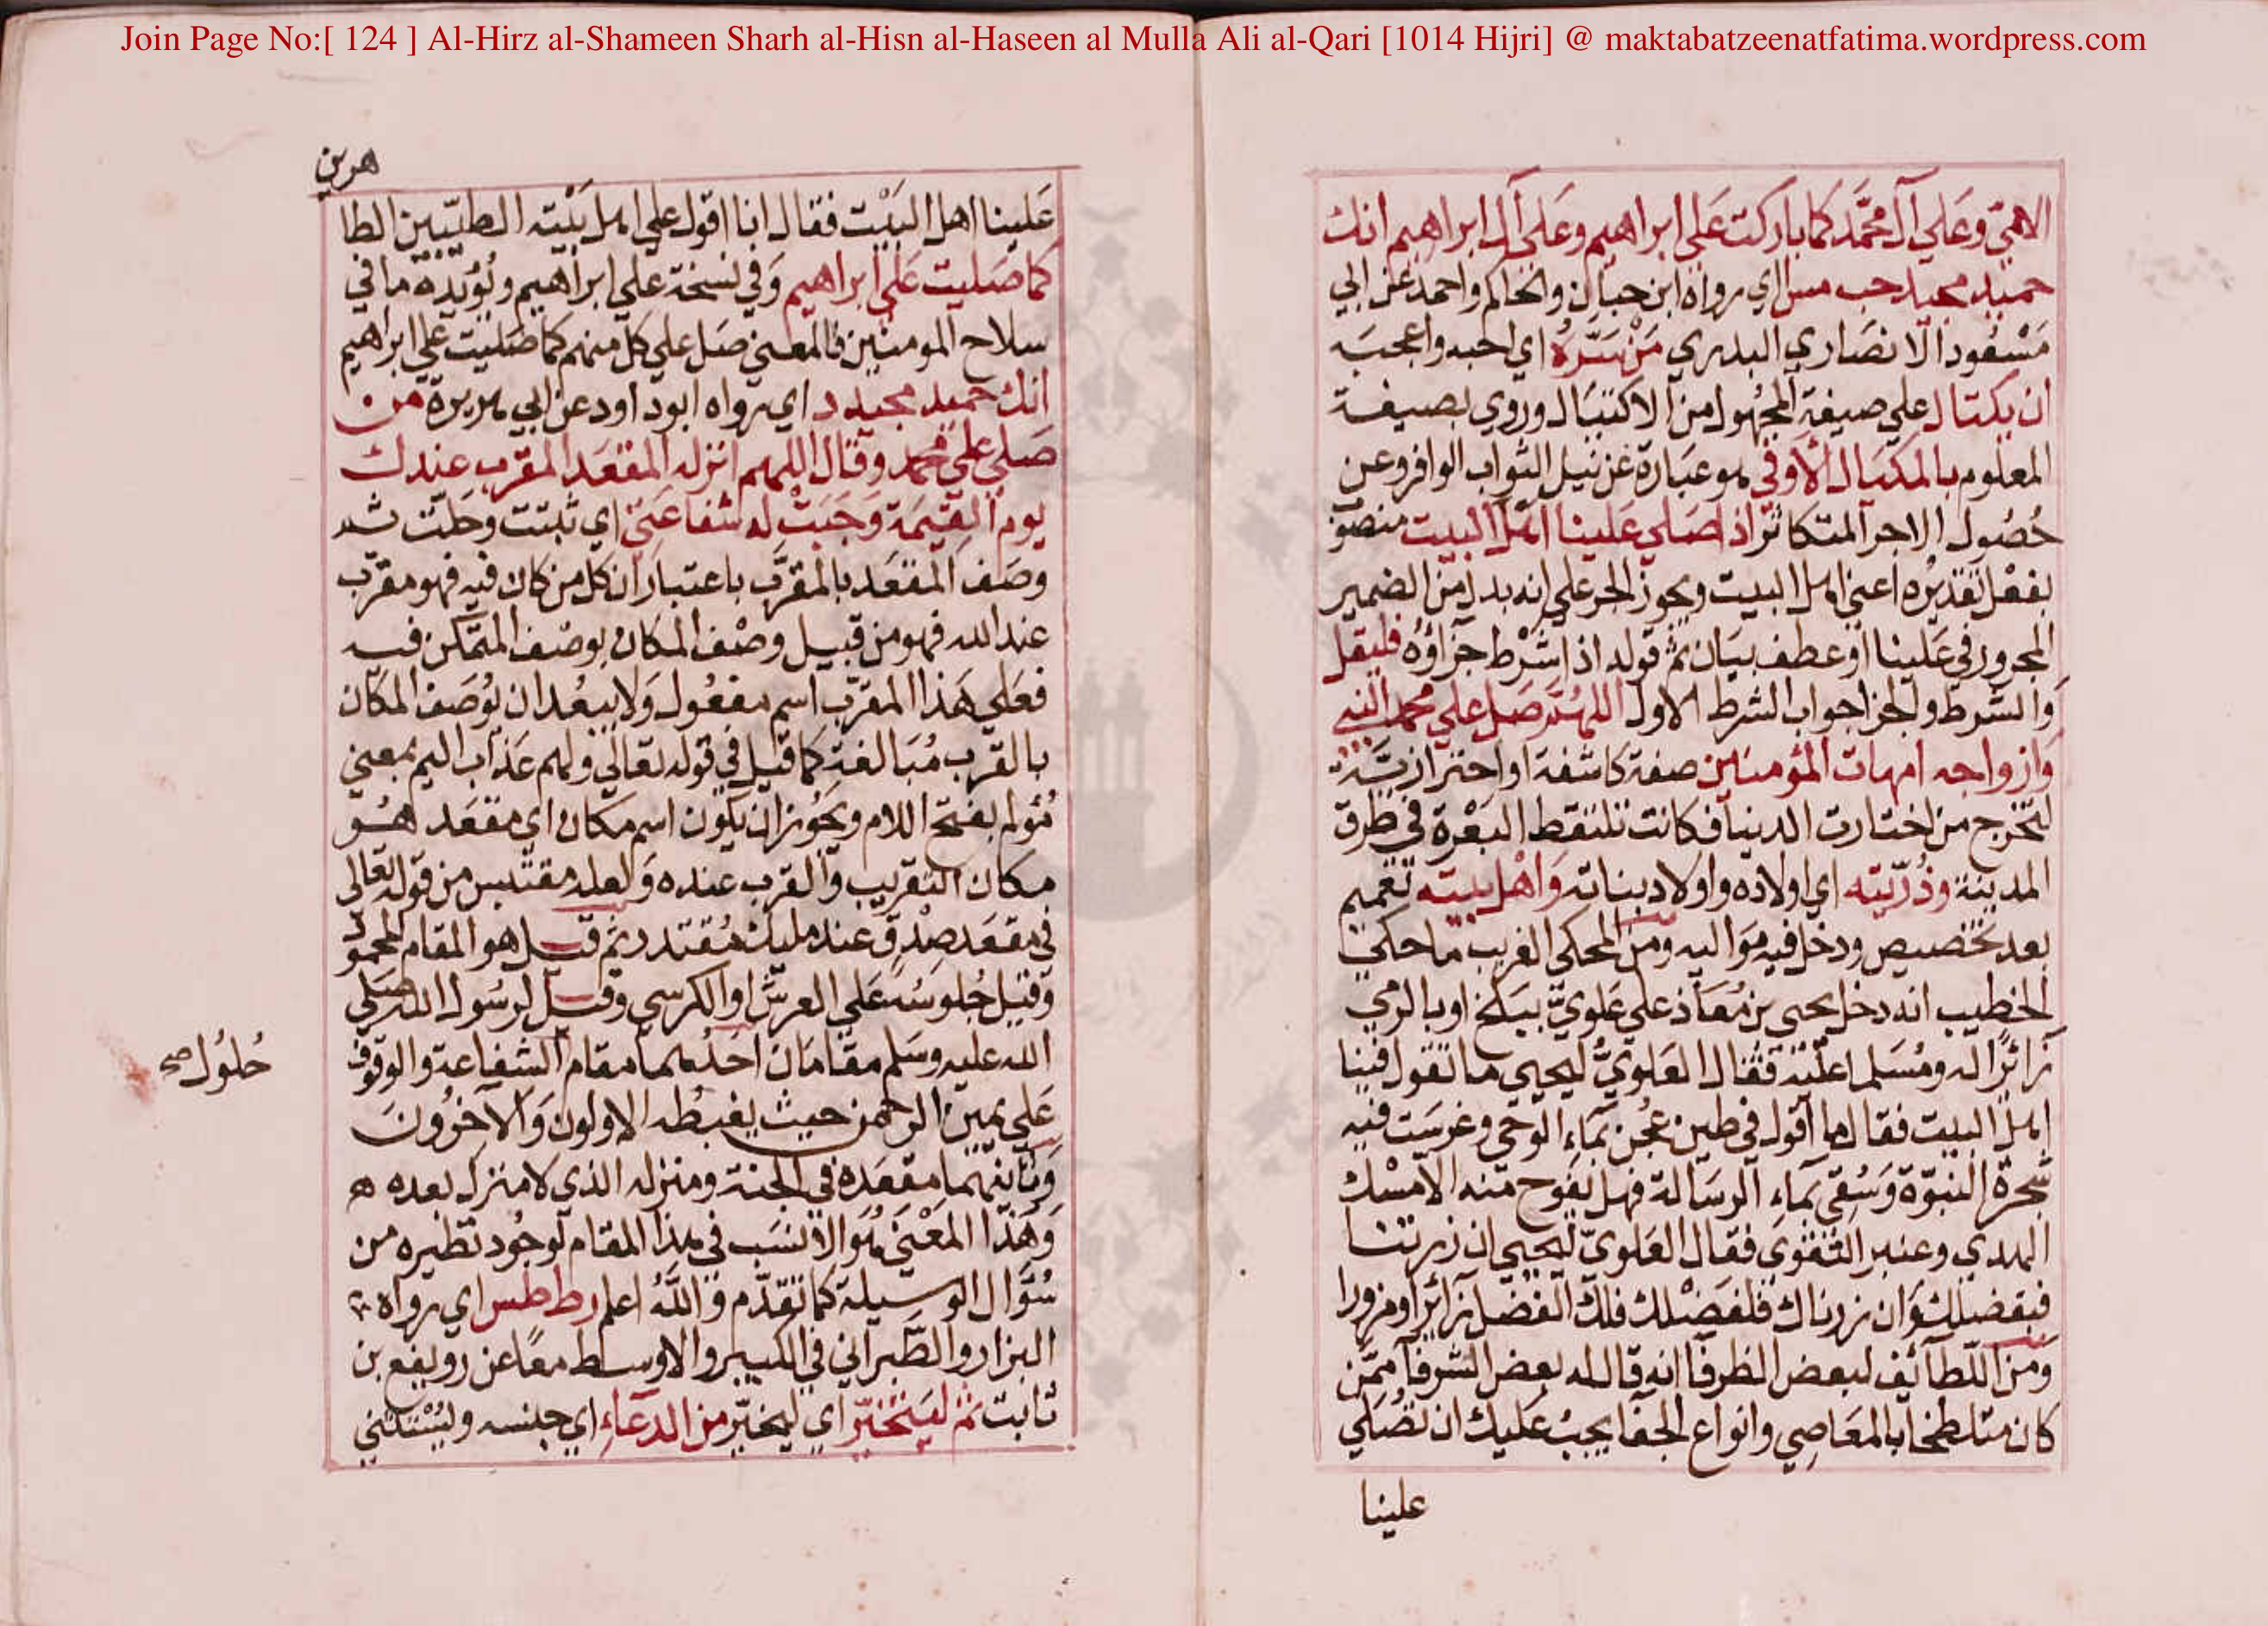 Join Page No:[ 124 ] Al-Hirz al-Shameen Sharh al-Hisn al-Haseen al Mulla Ali al-Qari [1014 Hijri] @ maktabatzeenatfatima.wordpress.com
الامّيّ وعَلي آل محمَّد كما باركت عَلي ابراهيم وعَلى آل ابراهيم انك
حميد مجيد حب مس اي رواه ابن حبان والحاكم واحمد عن ابي
مَسْعُود الانصَاري البدري مَنْ سَرَّهُ اي احبه واعجبَه
ان يكتال علي صيغة المجهول من الاكتيال وروي بصيغة
المعلوم بالمكيال الأوفي هو عبَارة عن نيل الثواب الوافر وعن
حُصُول الاجر المتكاثر اذا صَلي عَلينا اهل البيت منصوب
بفعْل تقديرُه اعني اهل البيت ويجوز الجر علي انه بدل من الضمير
المجرور في عَلينا او عطف بيَان ثم قوله اذا شرْط جزاؤُه فليقل
وَالشرط والجزا جواب الشرط الاول اللهُمَّ صَل علي محمد النبي
وَازواجه امهات المؤمنين صفة كاشفة او احترازيَّة
لتخرج من اختارت الدنيا فكانت تلتقط البَعْرة في طرق
المدينة وذُرّيّته اي اولاده واولاد بناته وَاهْل بيته تعميم
بعد تخصيص ودخل فيه مَواليه ومن المحكي الغريب ما حكي
الخطيب انه دخل يحيى بن مُعَاذ علي عَلويّ ببلخ او بالري
زائرًا له ومُسَلما عليْه فقال العَلويُّ ليحيي ما تقول فينا
اهل البيت فقال ما اقول في طين عُجن بمَاءِ الوحي وغرسَت فيه
شجرة النبوّة وَسُقي بماء الرسَالة فهل يفوح منه الا مسْك
الهدي وعنبر التقوي فقال العَلويّ ليحيي ان زرتنا
فبفضلك وَان زرناك فلفضْلك فلك الفضل زائرا ومزورا
وَمن اللطآئف لبعض الظرفا انه قال له بعض الشرفا ممَّن
كان متلطخا بالمعَاصِي وانواع الجفا يجبُ عَليك ان تُصَلي
علينا
هرين
عَلينا اهل البَيْت فقال انا اقول علي اهل بَيْته الطيّبين الطا
كما صَليت عَلي ابراهيم وَفي نسخة علي ابراهيم ويُؤيّدُه ما في
سلاح المومنين فالمعني صَل علي كل منهم كما صَليت علي ابراهيم
انك حميد مجيد د اي رواه ابو داود عن ابي هريرة من
صَلي علي محمد وقال اللهم انزله المقعَد المقرب عندك
يوم القيٰمَة وَجَبَتْ له شفاعَتي اي ثبتت وحَلّت
وصَف المقعَد بالمقرَّب باعتبار ان كل من كان فيه فهو مقرّب
عند الله فهو من قبيل وصْف المكان بوصْف المتمكن فيه
فعَلي هَذا المقرّب اسم مفعُول وَلا يبعُد ان يُوصَف المكان
بالقرب مُبَالغة كما قيل في قوله تعالي ولهم عَذاب اليم بمعني
مُؤلم بفتح اللام ويجُوز ان يكون اسم مكان اي مقعَد هُو
مكان التقريب وَالقرب عنده وَلعله مقتبس من قوله تعالى
في مقعَد صِدْق عند مليك مُقتدر ثم قيل هو المقام المحمود
وَقيل جُلوسُه عَلي العرش او الكرسي وقيل لرسُول الله صَلي
الله عليه وسَلم مقامَان احَدُهما مقام الشفاعة والوقوف
حُلوُل صح
عَلي يمين الرحمن حيث يغبطه الاولون وَالآخرُونَ
وَثانيهمَا مقعَده في الجنة ومنزله الذي لا منزل بعده ه
وَهَذا المَعْني هُوَ الانسَب في هذا المقام لوجُود نظيره من
سُؤَال الوسيلة كما تقدّم وَاللهُ اعلم ر ط طس اي رواه
البزار والطَّبرانيّ في الكبير والاوسط معًا عن رويفع بن
ثابت ثم ليَتخيّر اي ليخيّر من الدعَاءِ اي جنسه